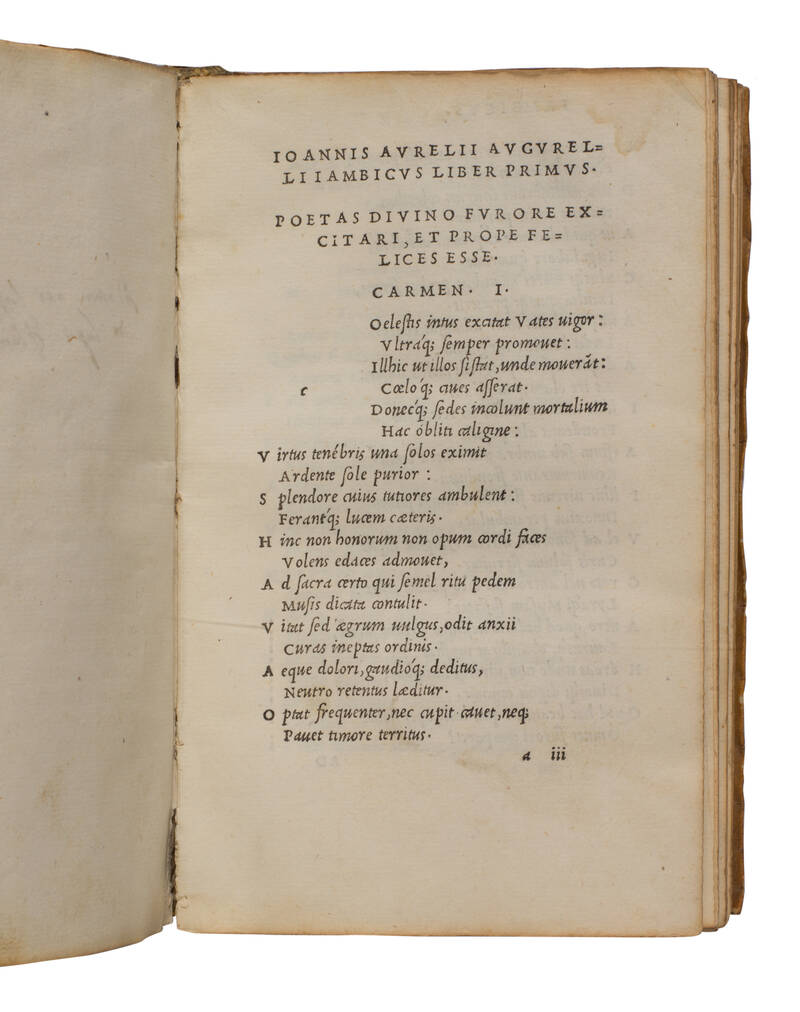 IOANNIS AVRELII AVGVREL=
LI IAMBICVS LIBER PRIMVS.
POETAS DIVINO FVRORE EX=
CITARI, ET PROPE FE=
LICES ESSE.
CARMEN. I.
c
Oelestis intus excitat Vates uigor:
Vltráq; semper promouet:
Illhic ut illos sistat, unde mouerāt:
Cœlóq; ciues asserat.
Donecq́; sedes incolunt mortalium
Hac óbliti caligine:
V irtus tenébris una solos eximit
Ardente sole purior:
S plendore cuius tutiores ambulent:
Ferantq́; lucem cæteris.
H inc non honorum non opum cordi faces
Volens edaces admouet,
A d sacra certo qui semel ritu pedem
Musis dicata contulit.
V itat sed ægrum uulgus, odit anxii
Curas ineptas ordinis.
A eque dolori, gaudióq; deditus,
Neutro retentus læditur.
O ptat frequenter, nec cupit. cauet, neq;
Pauet timore territus.
a iii